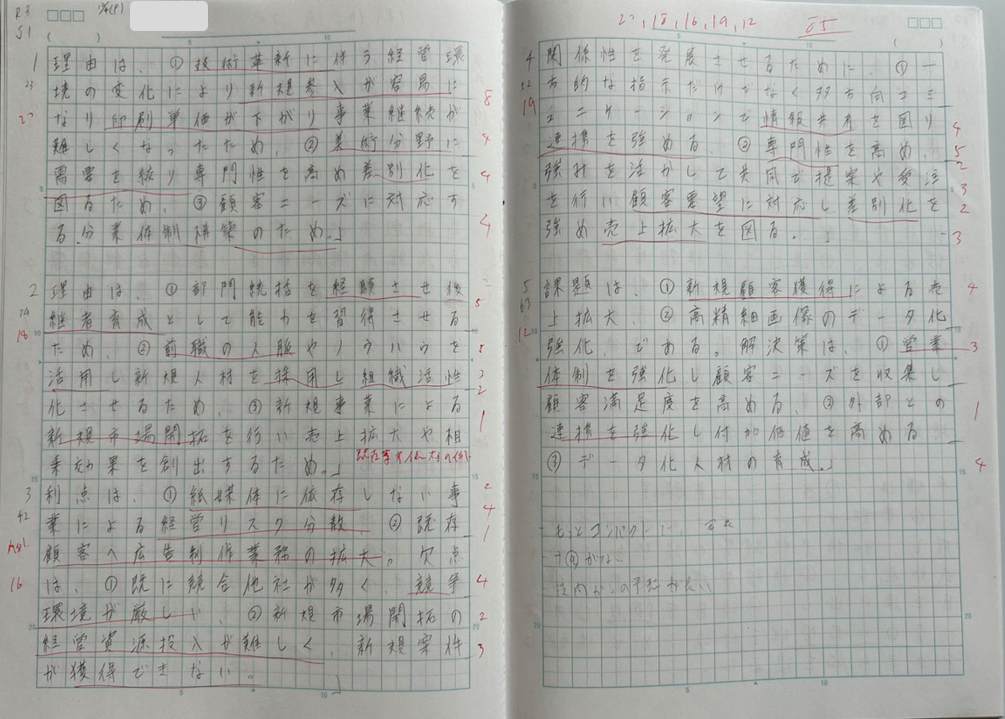 R3
S1
1 理由は、①技術革新に伴う経営環
境の変化により新規参入が容易に
なり印刷単価が下がり事業継続が
難しくなったため、②美術分野に
需要を絞り専門性を高め差別化を
図るため、③顧客ニーズに対応す
る分業体制構築のため。」
2 理由は、①部門統括を経験させ後
継者育成として能力を習得させる
ため、②前職の人脈やノウハウを
活用し新規人材を採用し組織活性
化させるため、③新規事業による
新規市場開拓を行い売上拡大や相
乗効果を創出するため。」
3 利点は、①紙媒体に依存しない事
業による経営リスク分散、②既存
顧客へ広告制作業務の拡大。欠点
は、①既に競合他社が多く、競争
環境が厳しい、②新規市場開拓の
経営資源投入が難しく、新規案件
が獲得できない。」
27, 18, 16, 19, 12 85
4 関係性を発展させるために、①一
方的な指示だけでなく双方向コミ
ュニケーションで情報共有を図り
連携を強める、②専門性を高め、
強みを活かして共同で提案や受注
を行い顧客要望に対応し差別化を
強め売上拡大を図る。」
5 課題は、①新規顧客獲得による売
上拡大、②高精細画像のデータ化
強化、である。解決策は、①営業
体制を強化し顧客ニーズを収集し
顧客満足度を高める、②外部との
連携を強化し付加価値を高める
③データ化人材の育成。」
もっとコンパクトに